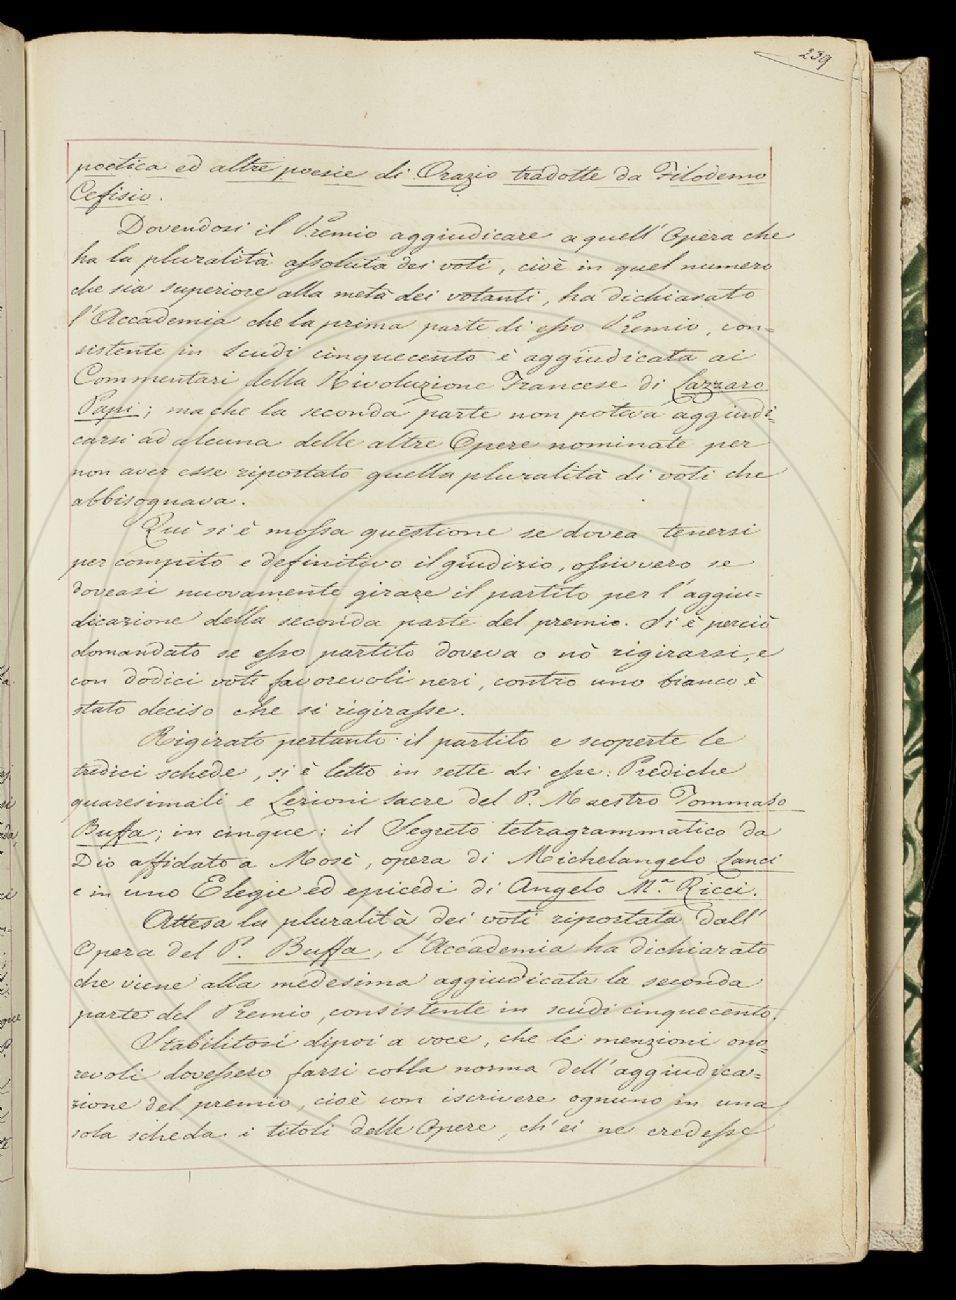 239
poetica ed altre poesie di Orazio tradotte da Filodemo
Cefisio.
Dovendosi il Premio aggiudicare a quell' Opera che
ha la pluralità assoluta dei voti, cioè in quel numero
che sia superiore alla metà dei votanti, ha dichiarato
l'Accademia che la prima parte di esso Premio, con=
sistente in scudi cinquecento è aggiudicata ai
Commentari della Rivoluzione Francese di Lazzaro
Papi; ma che la seconda parte non poteva aggiudi=
carsi ad alcuna delle altre Opere nominate per
non aver esse riportato quella pluralità di voti che
abbisognava.
Quì si è mossa questione se dovea tenersi
per compito e definitivo il giudizio, ossivvero se
doveasi nuovamente girare il partito per l'aggiu=
dicazione della seconda parte del premio. Si è perciò
domandato se esso partito doveva o nò rigirarsi, e
con dodici voti favorevoli neri, contro uno bianco è
stato deciso che si rigirasse.
Rigirato pertanto il partito e scoperte le
tredici schede, si è letto in sette di esse: Prediche
quaresimali e Lezioni sacre del P. Maestro Tommaso
Buffa; in cinque: il Segreto tetragrammatico da
Dio affidato a Mosè, opera di Michelangelo Lanci
e in uno Elegie ed epicedi di Angelo M.ª Ricci.
Attesa la pluralità dei voti riportata dall'
Opera del P. Buffa, l'Accademia ha dichiarato
che viene alla medesima aggiudicata la seconda
parte del Premio, consistente in scudi cinquecento.
Stabilitosi dipoi a voce, che le menzioni ono=
revoli dovessero farsi colla norma dell' aggiudica=
zione del premio, cioè con iscrivere ognuno in una
sola scheda i titoli delle Opere, ch'ei ne credesse